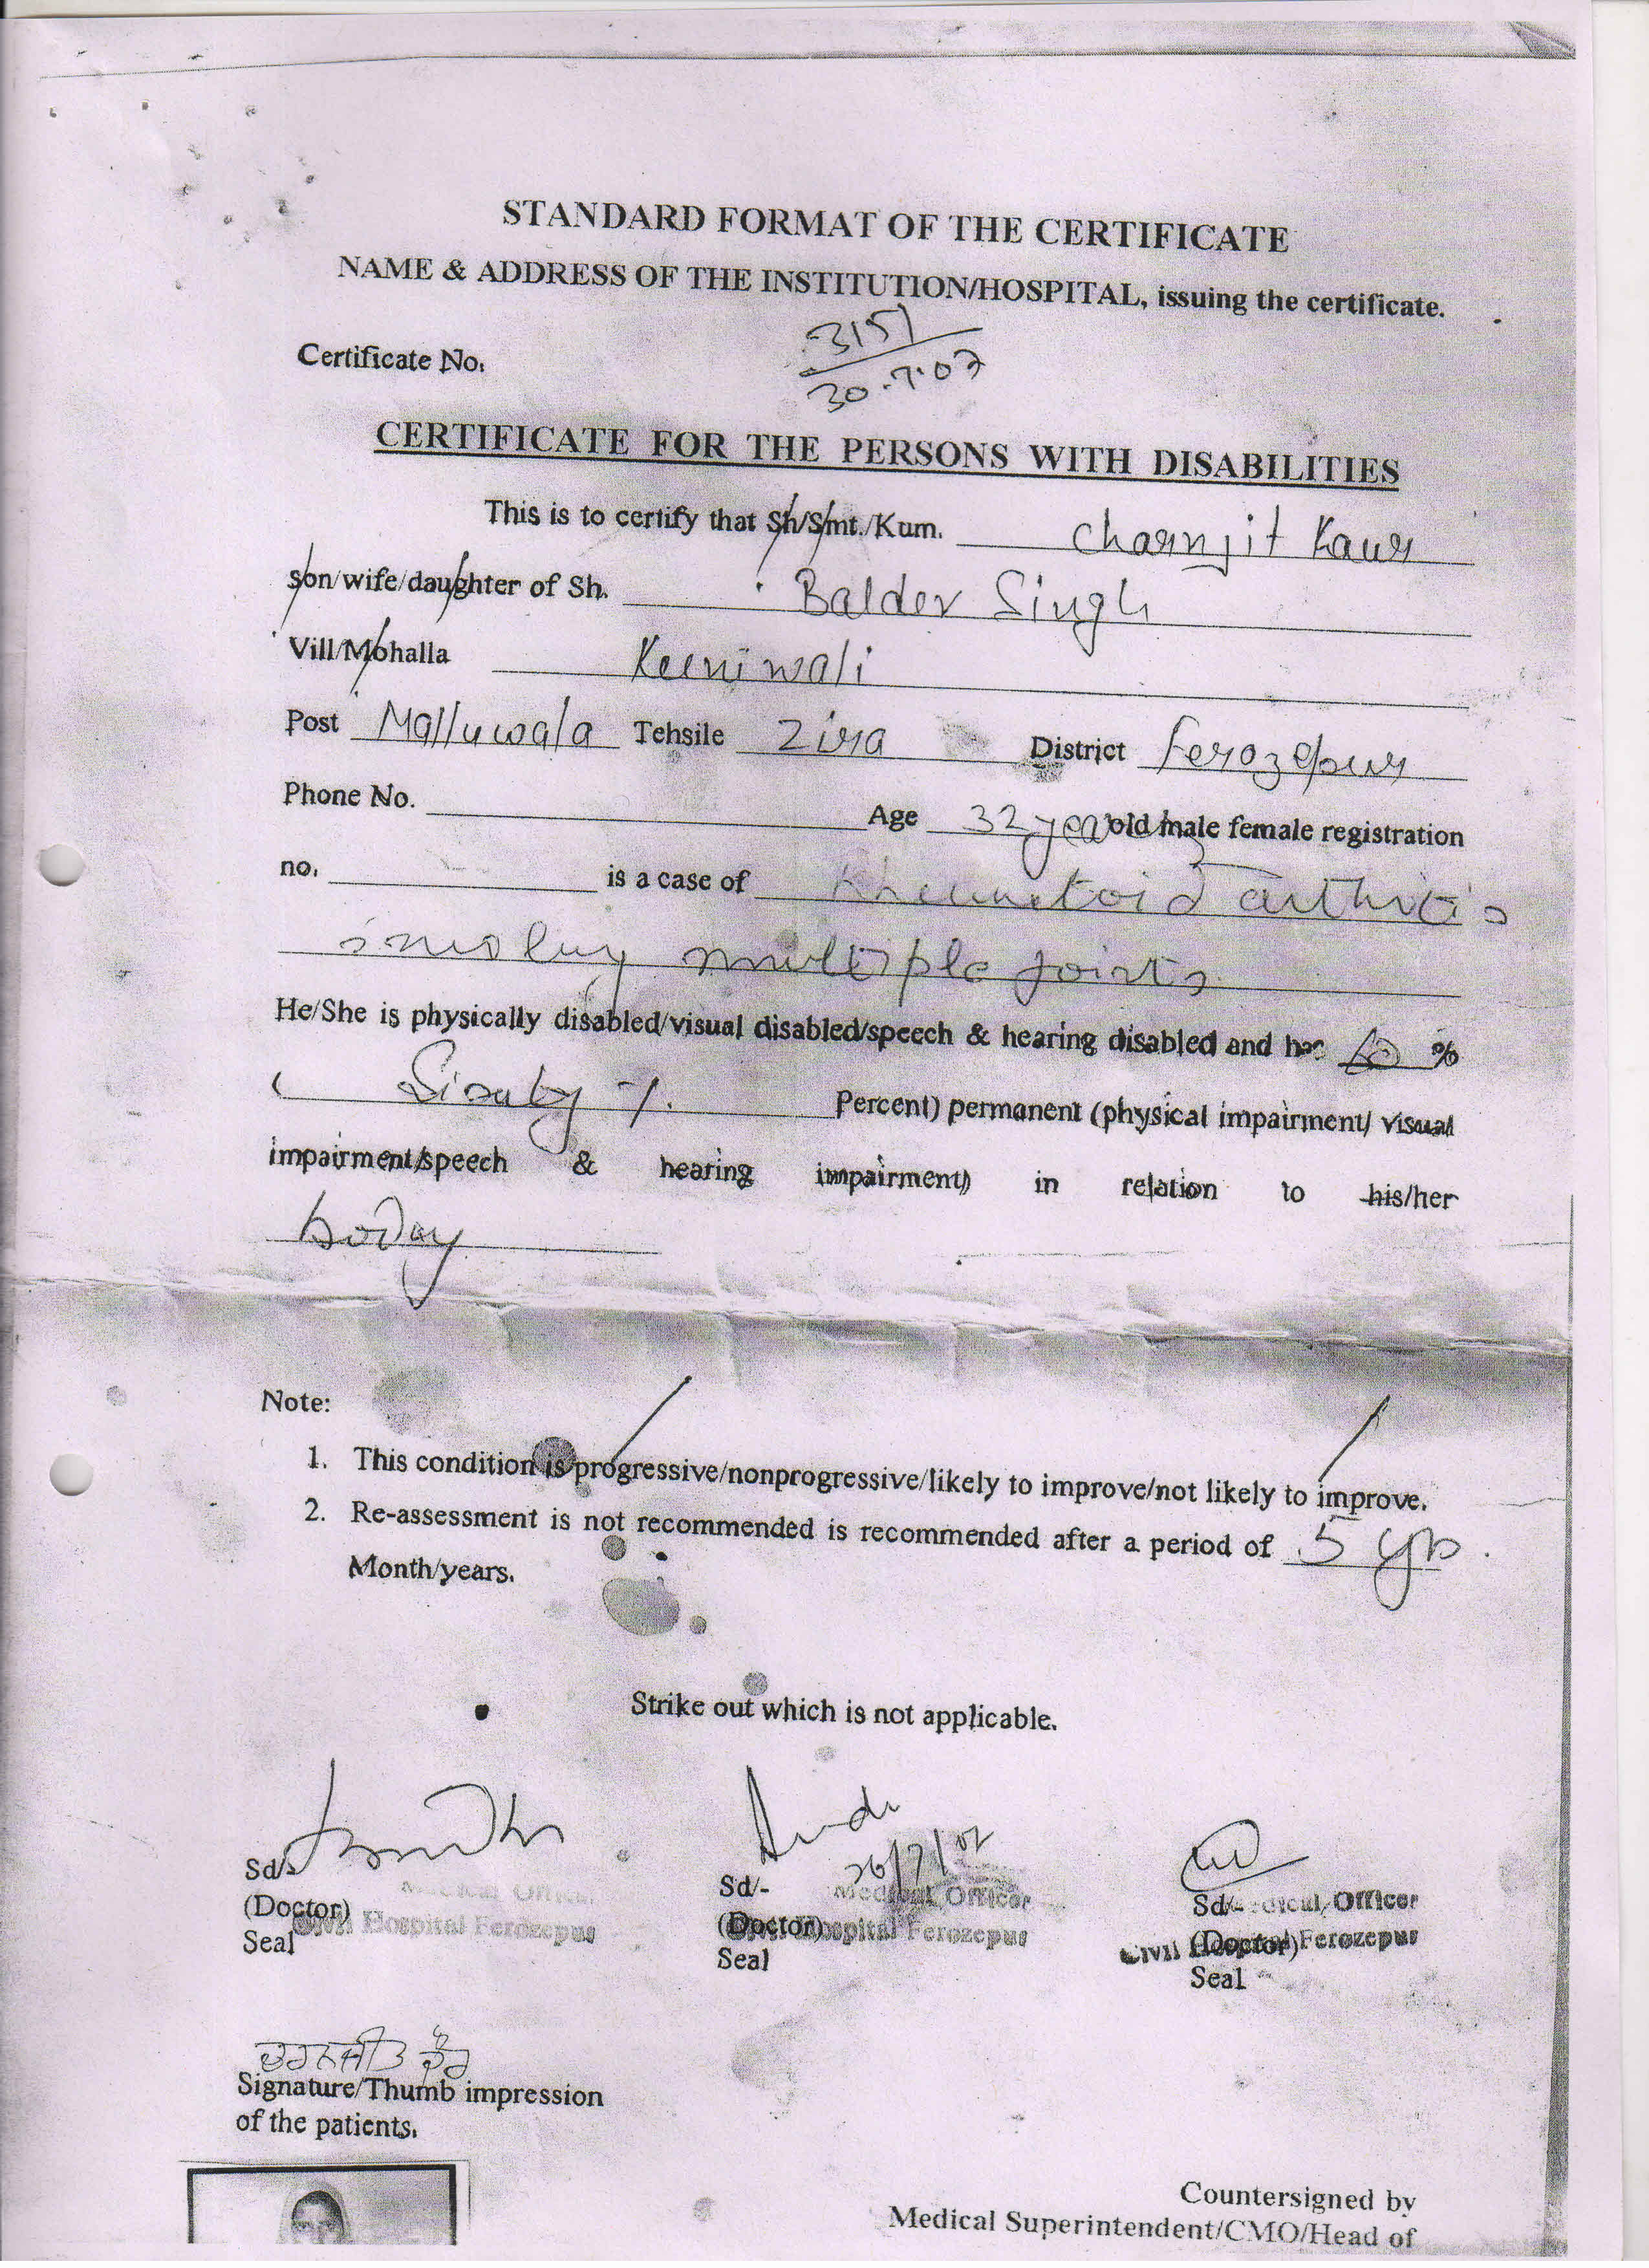 STANDARD FORMAT OF THE CERTIFICATE
NAME & ADDRESS OF THE INSTITUTION/HOSPITAL, issuing the certificate.
Certificate No. 3151
30.7.07
CERTIFICATE FOR THE PERSONS WITH DISABILITIES
This is to certify that Sh/Smt./Kum. Charnjit Kaur
son/wife/daughter of Sh. Baldev Singh
Vill/Mohalla
Post Malluwala Tehsile Zira District Ferozepur
Phone No. Age 32 years old male female registration
no. is a case of Rheumatoid arthritis
involving multiple joints
He/She is physically disabled/visual disabled/speech & hearing disabled and has 60 %
( Percent) permanent (physical impairment/ visual
impairment/speech & hearing impairment) in relation to his/her
boday
Note:
1. This condition is progressive/nonprogressive/likely to improve/not likely to improve.
2. Re-assessment is not recommended is recommended after a period of 5 yrs.
Month/years.
Strike out which is not applicable.
Sd/- Sd/- Sd/-
Medical Officer Medical Officer Medical Officer
(Doctor) (Doctor) (Doctor)
Civil Hospital Ferozepur Civil Hospital Ferozepur Civil Hospital Ferozepur
Seal Seal Seal
ਚਰਨਜੀਤ ਕੌਰ
Signature/Thumb impression
of the patients.
Countersigned by
Medical Superintendent/CMO/Head of